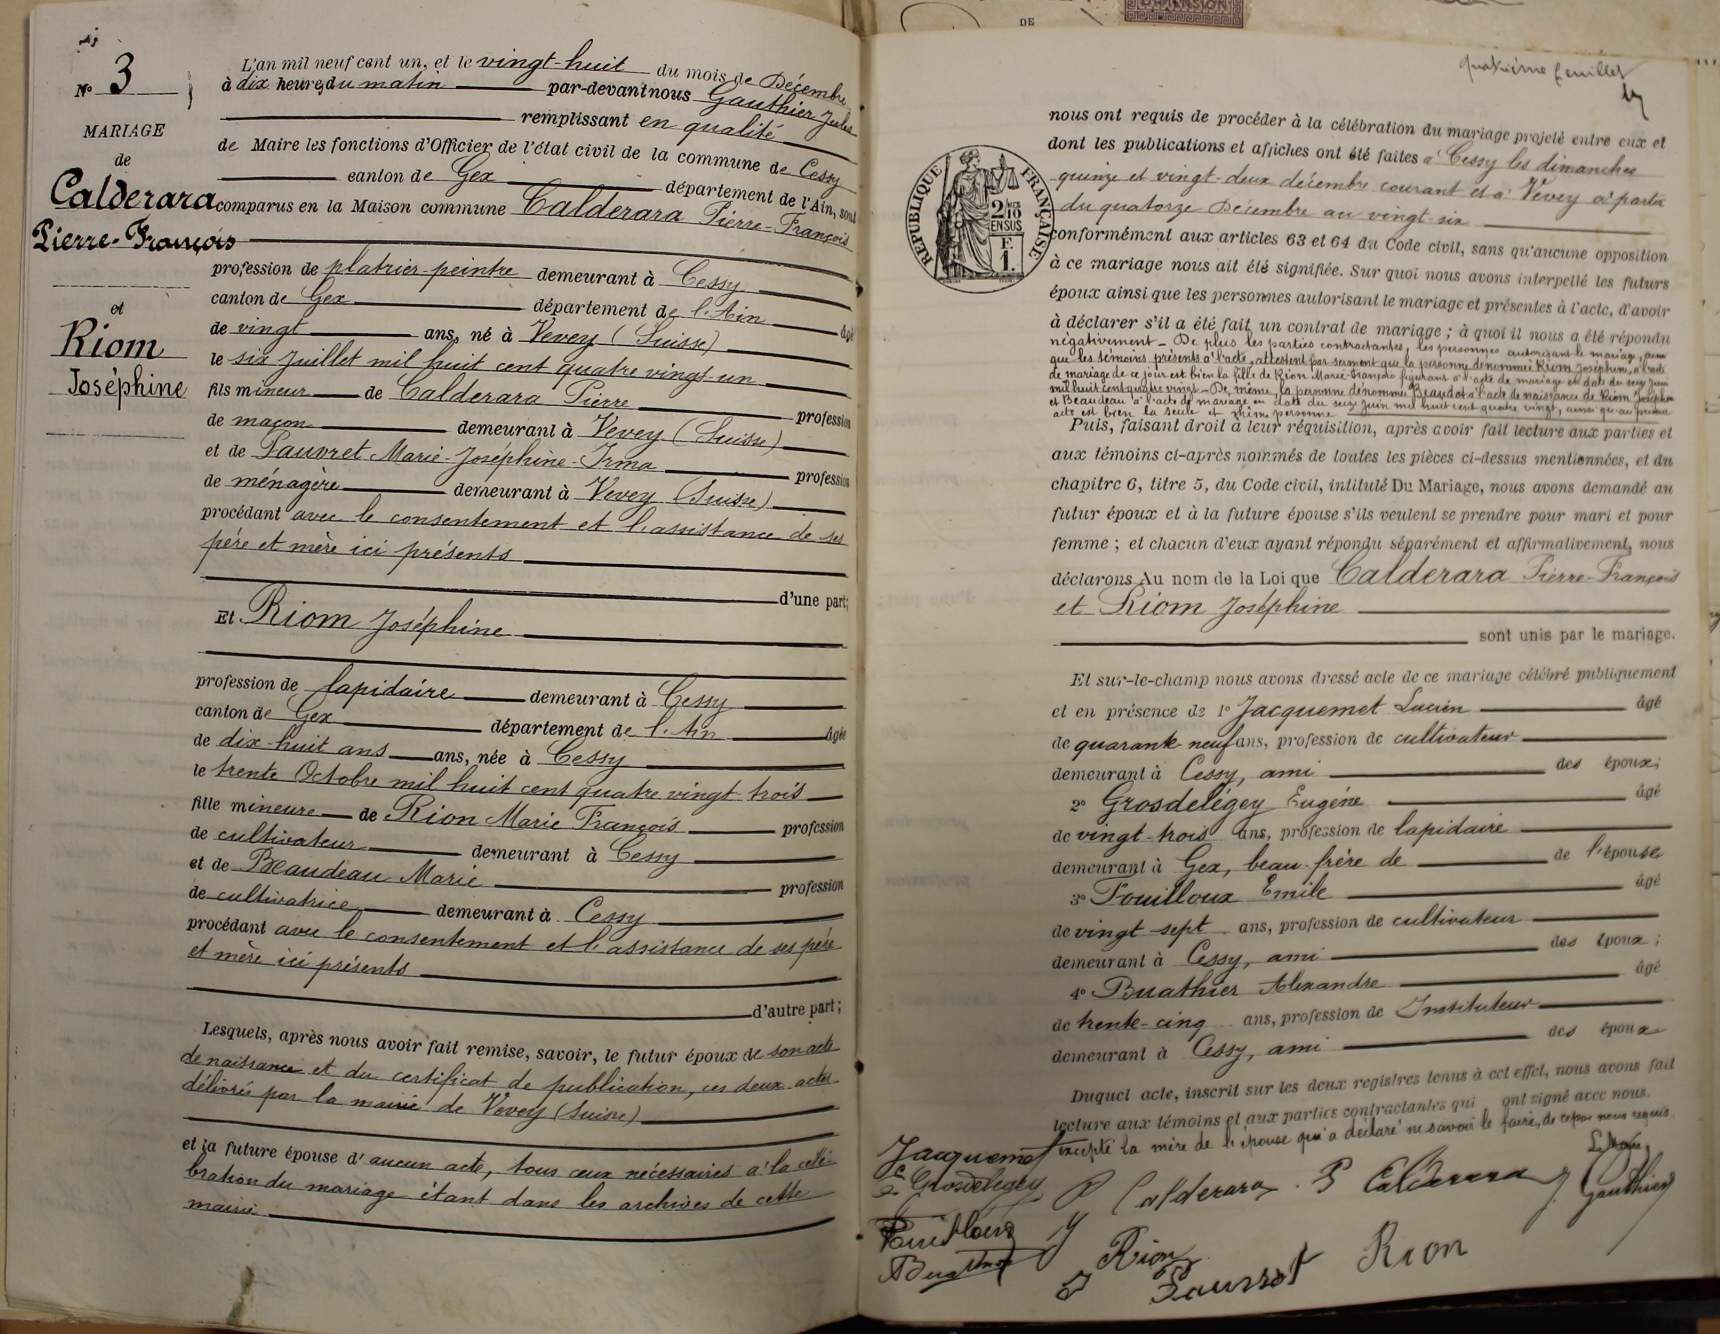 N° 3
MARIAGE
de
Calderara
Pierre-François
et
Riom
Joséphine
L'an mil neuf cent un, et le vingt-huit du mois de Décembre
à dix heures du matin par-devant nous Gauthier Jules
remplissant en qualité
de Maire les fonctions d'Officier de l'état civil de la commune de Cessy
canton de Gex département de l'Ain, sont
comparus en la Maison commune Calderara Pierre-François
profession de platrier-peintre demeurant à Cessy
canton de Gex département de l'Ain âgé
de vingt ans, né à Vevey (Suisse)
le six Juillet mil huit cent quatre vingt-un
fils mineur de Calderara Pierre profession
de maçon demeurant à Vevey (Suisse)
et de Pauvret Marie-Joséphine-Irma profession
de ménagère demeurant à Vevey (Suisse)
procédant avec le consentement et l'assistance de ses
père et mère ici présents
d'une part;
Et Riom Joséphine
profession de lapidaire demeurant à Cessy
canton de Gex département de l'Ain âgée
de dix-huit ans ans, née à Cessy
le trente Octobre mil huit cent quatre vingt trois
fille mineure de Rion Marie François profession
de cultivateur demeurant à Cessy
et de Beaudeau Marie profession
de cultivatrice demeurant à Cessy
procédant avec le consentement et l'assistance de ses père
et mère ici présents
d'autre part;
Lesquels, après nous avoir fait remise, savoir, le futur époux de son acte
de naissance et du certificat de publication, ces deux actes
délivrés par la mairie de Vevey (Suisse)
et la future épouse d'aucun acte, tous ceux nécessaires à la célé-
bration du mariage étant dans les archives de cette
mairie
DE
DIMENSION
quatrième feuillet
RÉPUBLIQUE FRANÇAISE
2/10
EN SUS
F.
1.
nous ont requis de procéder à la célébration du mariage projeté entre eux et
dont les publications et affiches ont été faites à Cessy les dimanches
quinze et vingt-deux décembre courant et à Vevey à partir
du quatorze Décembre au vingt-six
conformément aux articles 63 et 64 du Code civil, sans qu'aucune opposition
à ce mariage nous ait été signifiée. Sur quoi nous avons interpellé les futurs
époux ainsi que les personnes autorisant le mariage et présentes à l'acte, d'avoir
à déclarer s'il a été fait un contrat de mariage; à quoi il nous a été répondu
négativement - De plus les parties contractantes, les personnes autorisant le mariage, ainsi
que les témoins présents à l'acte, attestent par serment que la personne dénommée Riom Joséphine, à l'acte
de mariage de ce jour est bien la fille de Rion Marie François figurant à l'acte de mariage en date du seize Juin
mil huit cent quatre vingt - De même, la personne dénommée Beaudot à l'acte de naissance de Riom Joséphine
et Beaudeau à l'acte de mariage en date du seize Juin mil huit cent quatre vingt, ainsi qu'au présent
acte est bien la seule et même personne
Puis, faisant droit à leur réquisition, après avoir fait lecture aux parties et
aux témoins ci-après nommés de toutes les pièces ci-dessus mentionnées, et du
chapitre 6, titre 5, du Code civil, intitulé Du Mariage, nous avons demandé au
futur époux et à la future épouse s'ils veulent se prendre pour mari et pour
femme; et chacun d'eux ayant répondu séparément et affirmativement, nous
déclarons Au nom de la Loi que Calderara Pierre-François
et Riom Joséphine
sont unis par le mariage.
Et sur-le-champ nous avons dressé acte de ce mariage célébré publiquement
et en présence de 1° Jacquemet Lucien âgé
de quarante neuf ans, profession de cultivateur
demeurant à Cessy, ami des époux;
2° Grosdelégey Eugène âgé
de vingt-trois ans, profession de lapidaire
demeurant à Gex, beau-frère de de l'épouse
3° Fouilloux Emile âgé
de vingt-sept ans, profession de cultivateur
demeurant à Cessy, ami des époux;
4° Buathier Alexandre âgé
de trente-cinq ans, profession de Instituteur
demeurant à Cessy, ami des époux
Duquel acte, inscrit sur les deux registres tenus à cet effet, nous avons fait
lecture aux témoins et aux parties contractantes qui ont signé avec nous.
excepté la mère de l'épouse qui a déclaré ne savoir le faire, de ce par nous requis.
Jacquemet
E. Grosdelégey
P Calderara
P Calderara
J Gauthier
J Rion
Rion